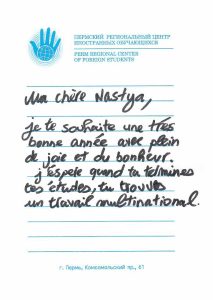 ПЕРМСКИЙ РЕГИОНАЛЬНЫЙ ЦЕНТР
ИНОСТРАННЫХ ОБУЧАЮЩИХСЯ
PERM REGIONAL CENTER
OF FOREIGN STUDENTS
Ma chère Nastya,
je te souhaite une très
bonne année avec plein
de joie et du bonheur.
j'espère quand tu termines
tes études, tu trouves
un travail multinational.
г. Пермь, Комсомольский пр., 61